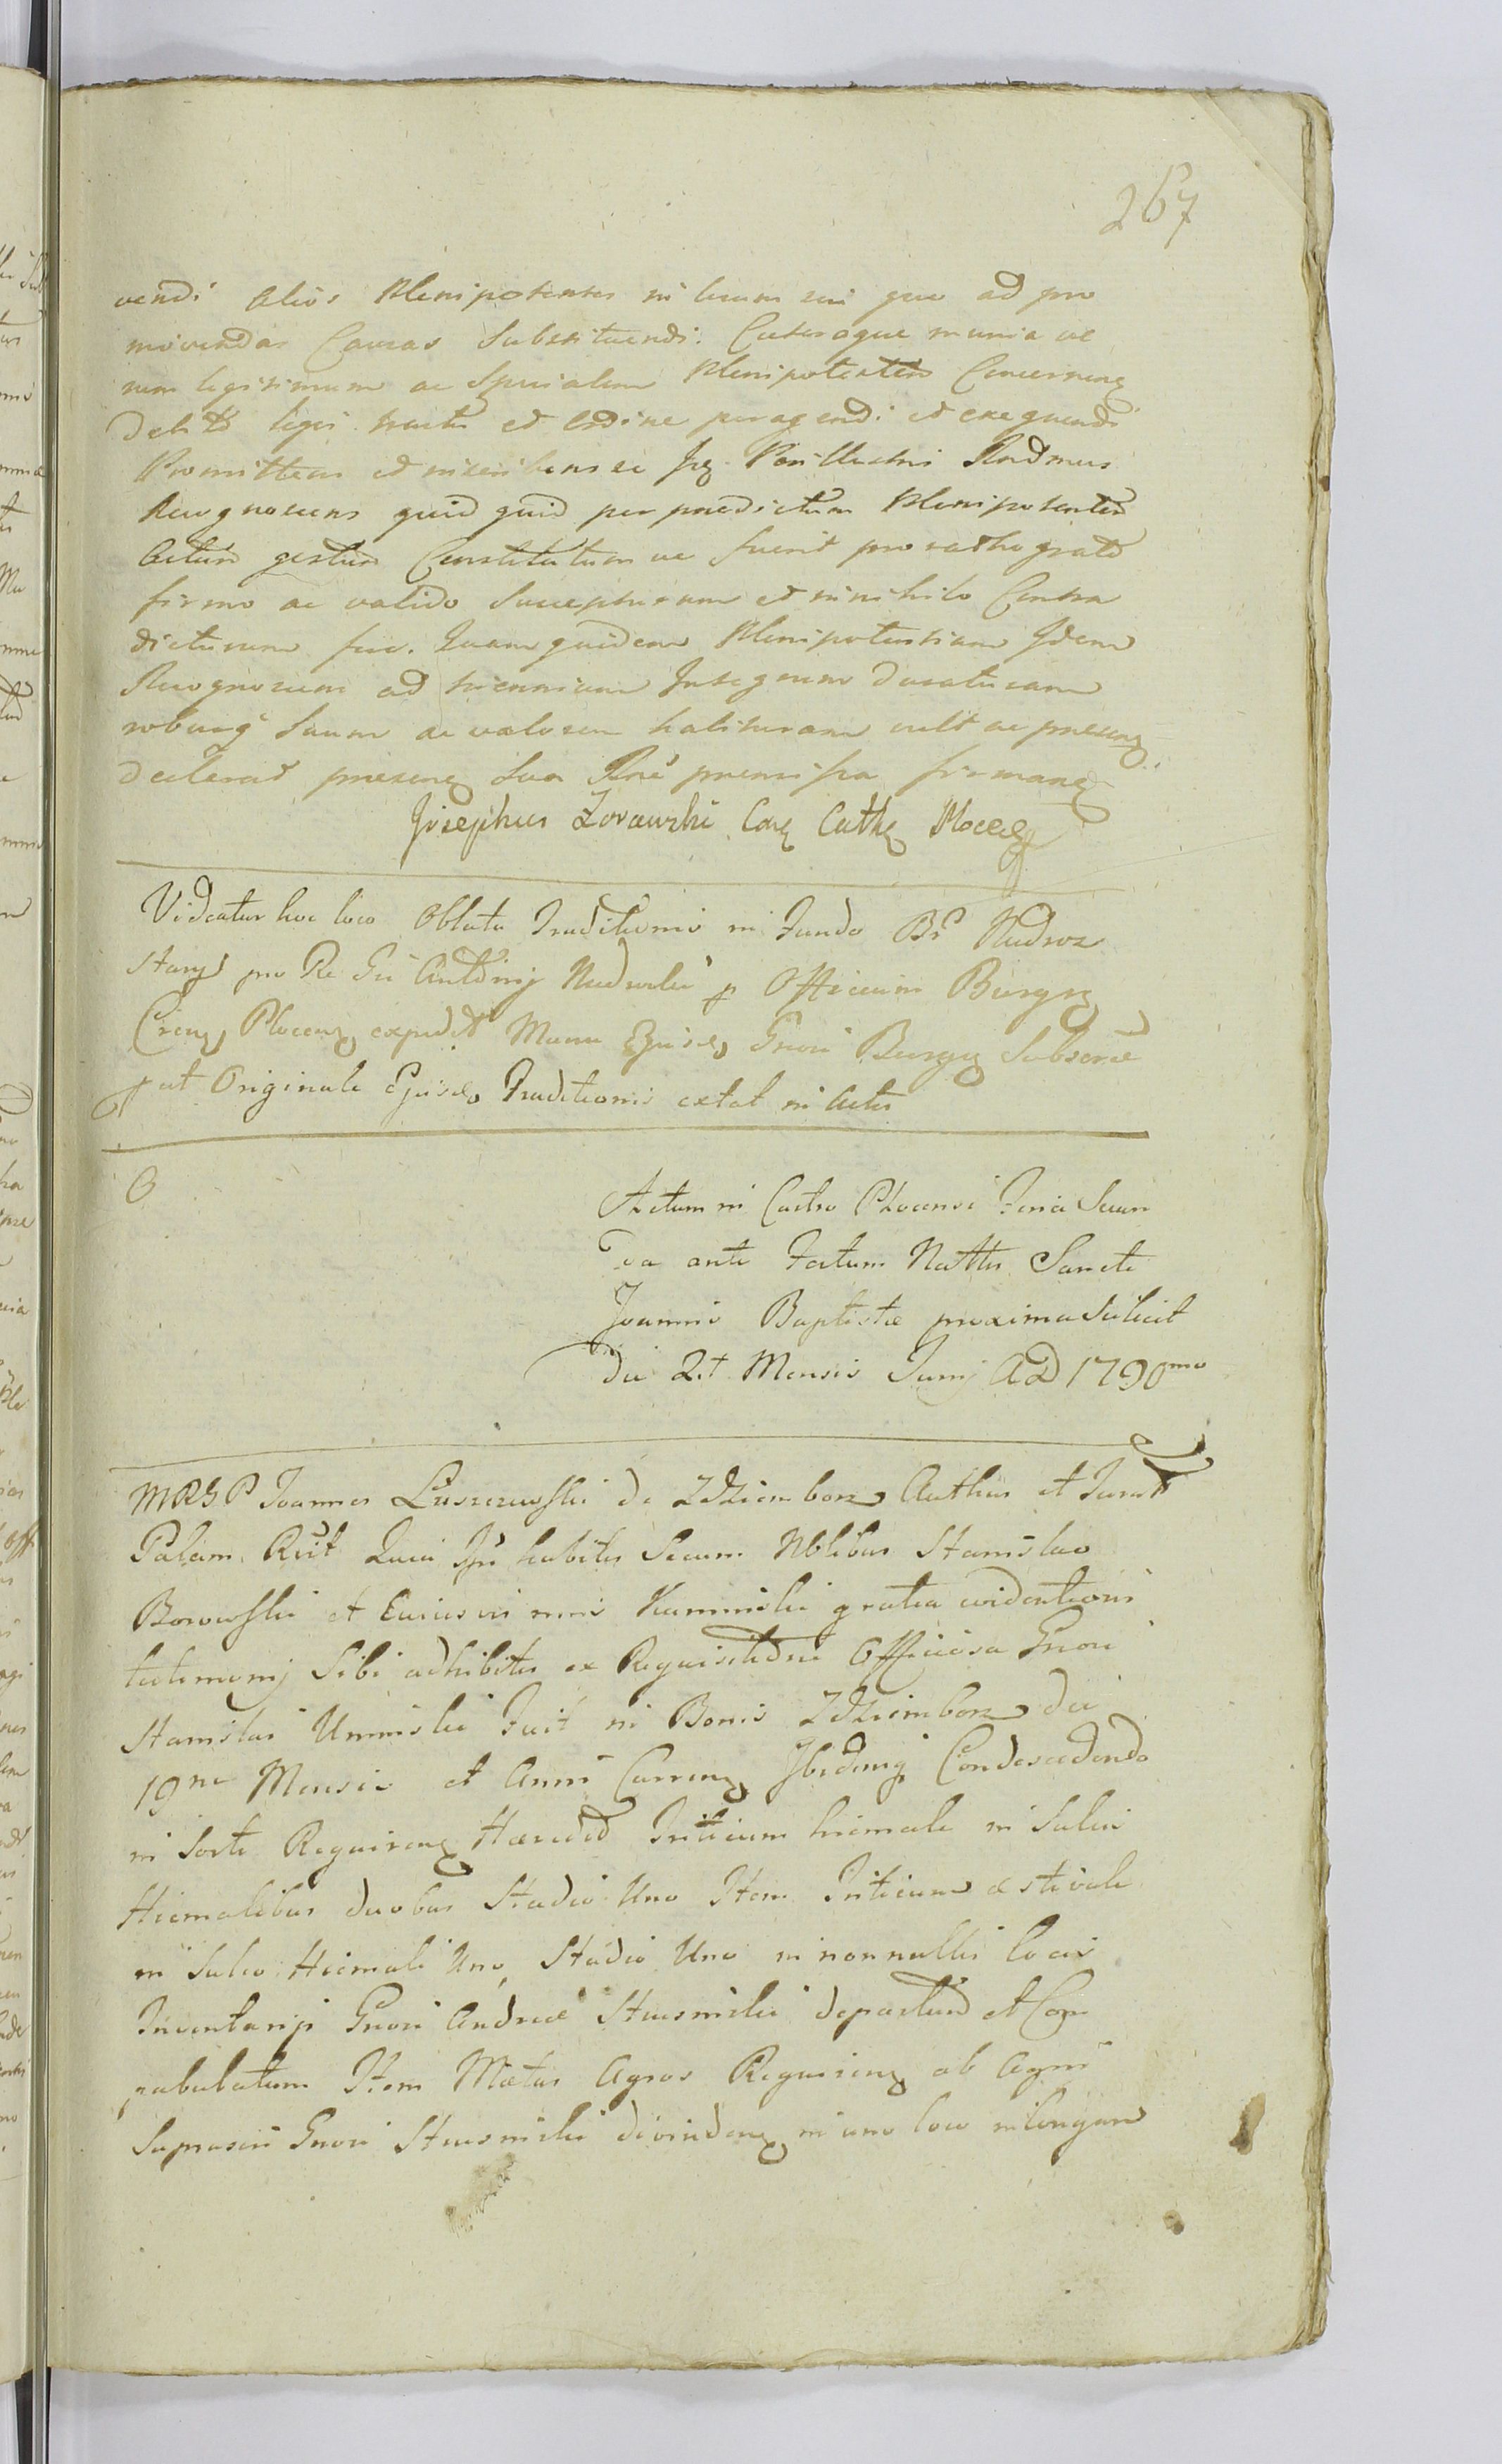 267
vendi alios Plenipotentes in locum sui quo ad pro
movendas Causas Substituendi. Caeteraque munia ve
rum legitimum ac Specialem Plenipotentem Concernen
debito legis tractu et Ordine peragendi et exequendi
Promittens et inscribens se Ipse Perillustris Rndmus
Recognoscens quid quid per praedictum Plenipotentem
Actum gestum Constitutum ve fuerit pro ratho grato
firmo ac valido Suscepturum et in nihilo Contra
dicturum fore. Quam quidem Plenipotentiam Idem
Recognoscens ad triennium Integrum duraturam
roburq Suum ac valorem habituram vult ac praesen
declarat praesen Sua Rne praemissa firman
Josephus Zorawski Can Cath Plocen
Videatur hoc loco Oblata Traditionis in Fundo Br Nudroz
Starys pro Re Gii Antonij Nudwski p Officium Burgr
Cicen Plocen expedit Manu Ejusd Gnori Burgr Subscrae
put Originale Ejusd Traditionis extat in Actis
O
Actum in Castro Plocensi Feria Secun
da ante Festum Nattis Sancti
Joannis Baptistae proxima Scilicet
die 21 Mensis Junij AD 1790mo
MRGP Joannes Luszczewski de Zdziemborz Authus et Jurat
Palam Rcit Quia Ipse habitis Secum Nblibus Stanislao
Borowski et Kaminski gratia evidentioris
testimonij Sibi adhibitis ex Requisitione Officiosa Gnori
Stanislai Uminski Fuit in Bonis Zdziemborz die
19na Mensis et Anni Curren Ibidemq Condescendendo
in Sorte Requiren Haeredit Triticum hiemale in Sulcis
Hiemalibus duobus Stadio Uno Item Triticum aestivale
in Sulco Hiemali Uno Stadio Uno in nonnullis locis
Inventarijs Gnori Andreae Strusinski depastum et Con
pabulatum Item Metas Agros Requiren ab Agris
Suprascri Gnori Strusinski dividen in uno loco in longum